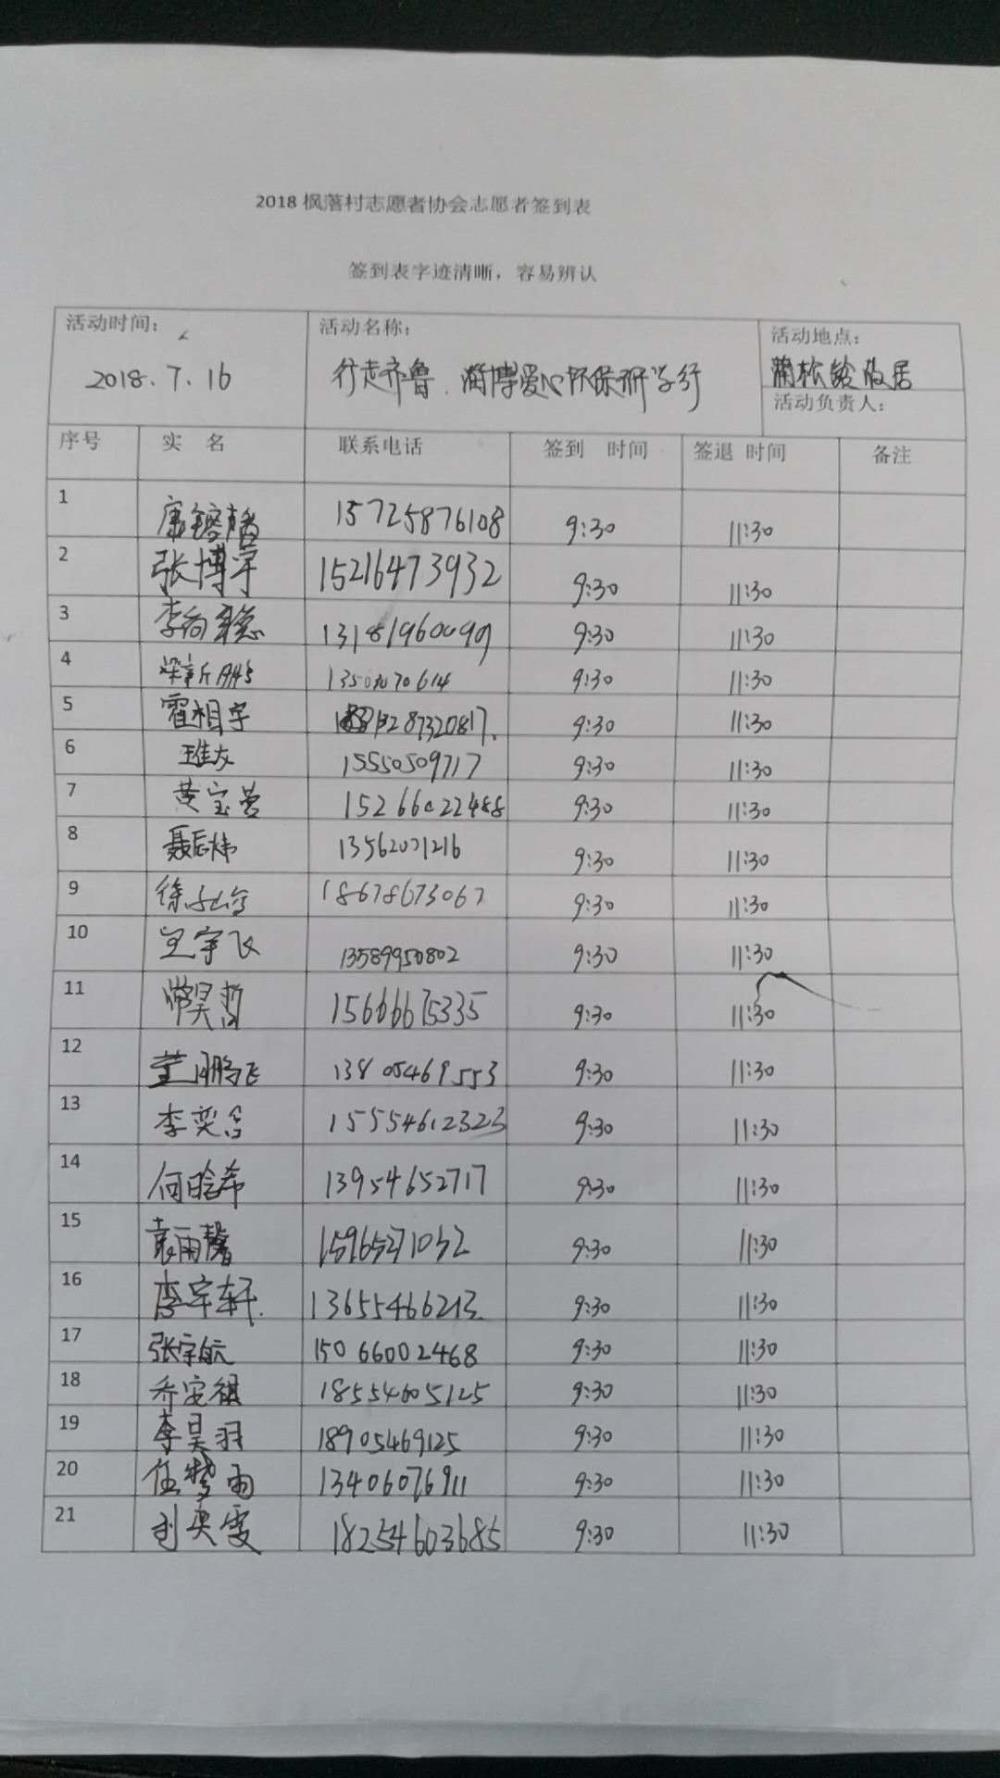 2018 枫落村志愿者协会志愿者签到表
签到表字迹清晰，容易辨认
活动时间： 活动名称： 活动地点：
2018.7.16 行走齐鲁.淄博爱心环保研学行 蒲松龄故居
活动负责人：
序号 实 名 联系电话 签到 时间 签退 时间 备注
1 15725876108 9:30 11:30
2 张博宇 15216473932 9:30 11:30
3 李尚 9:30 11:30
4 9:30 11:30
5 霍相宇 9:30 11:30
6 15550509717 9:30 11:30
7 黄宝 15266022488 9:30 11:30
8 聂 13562071216 9:30 11:30
9 徐 18678673067 9:30 11:30
10 王宇飞 13589950802 9:30 11:30
11 昊哲 15666675335 9:30 11:30
12 董鹏飞 13805469553 9:30 11:30
13 李奕含 15554612323 9:30 11:30
14 何晗希 13954652717 9:30 11:30
15 袁雨馨 15965271032 9:30 11:30
16 李宇轩 13655466213 9:30 11:30
17 张宇航 15066002468 9:30 11:30
18 乔安祺 18554605125 9:30 11:30
19 李昊羽 18905469125 9:30 11:30
20 任梦雨 13406076911 9:30 11:30
21 刘奕雯 18254603685 9:30 11:30